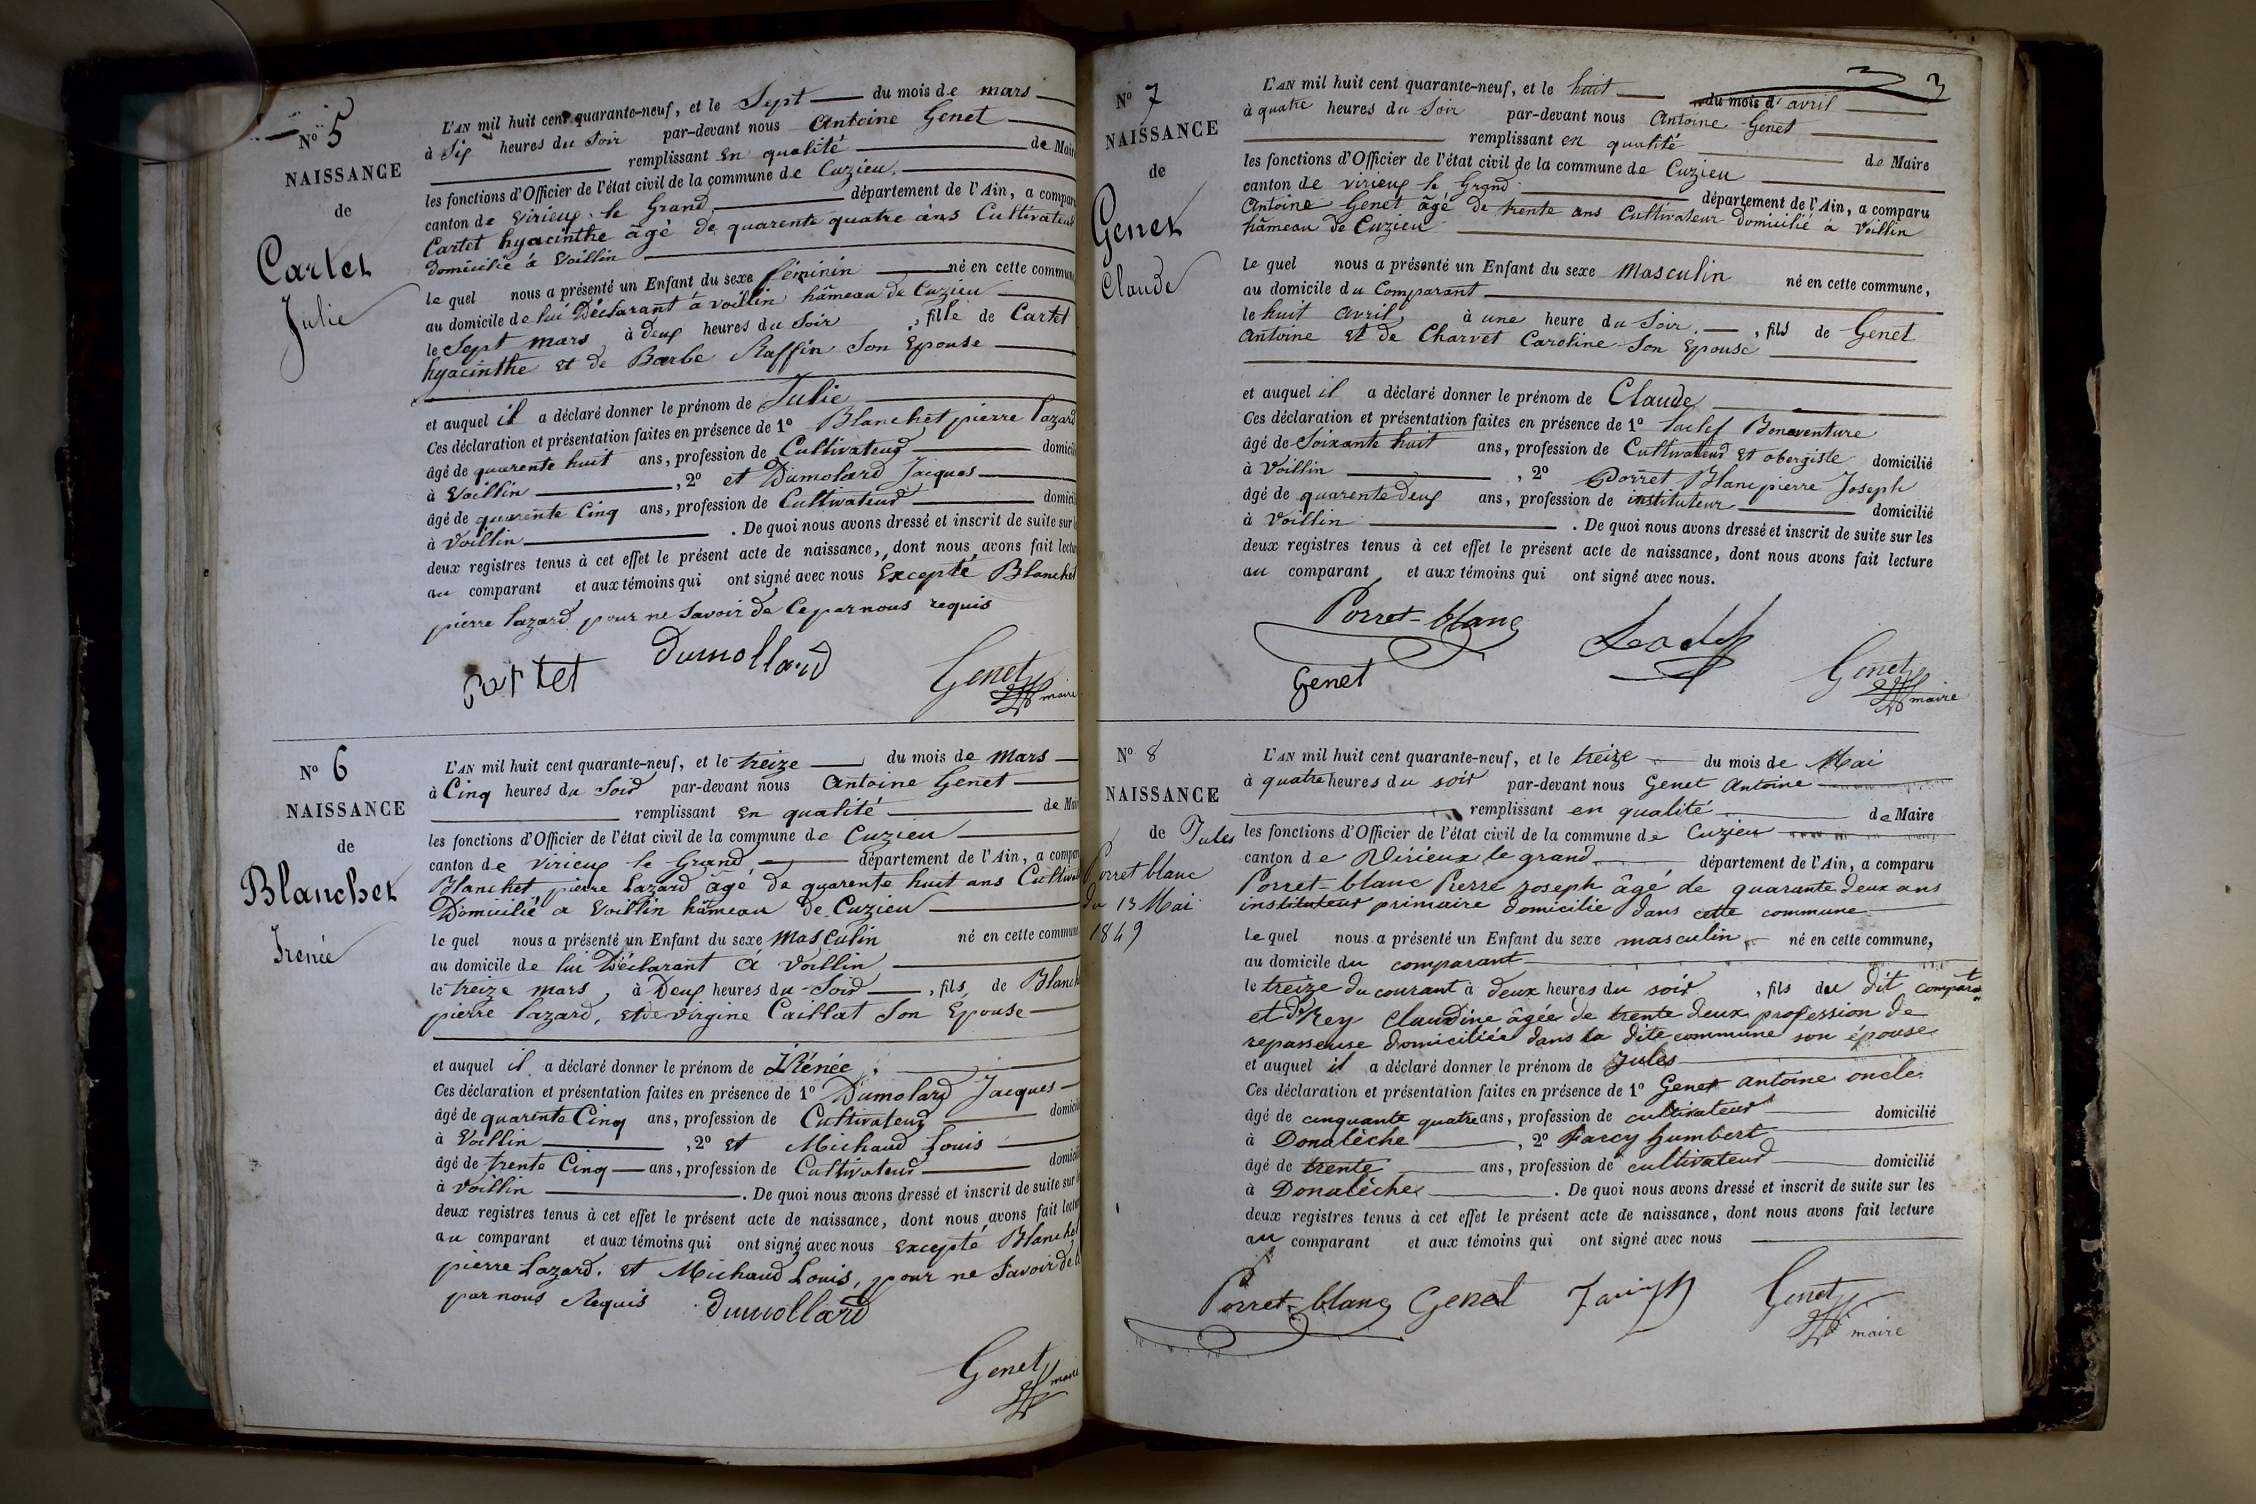 No 5
NAISSANCE
de
Cartet
Julie
L'AN mil huit cent quarante-neuf, et le Sept du mois de mars
à Six heures du Soir par-devant nous Antoine Genet
remplissant en qualité de Maire
les fonctions d'Officier de l'état civil de la commune de Cuzieu
canton de virieux le Grand département de l'Ain, a comparu
Cartet hyacinthe âgé de quarente quatre ans Cultivateur
domicilié à Voillin
le quel nous a présenté un Enfant du sexe féminin né en cette commune
au domicile de lui Déclarant à voillin hâmeau de Cuzieu
le Sept mars à deux heures du Soir, fille de Cartet
hyacinthe et de Barbe Raffin Son Epouse
et auquel il a déclaré donner le prénom de Julie
Ces déclaration et présentation faites en présence de 1º Blanchet pierre Lazard
âgé de quarente huit ans, profession de Cultivateur domicilié
à Voillin, 2º et Dumolard Jacques
âgé de quarente Cinq ans, profession de Cultivateur domicilié
à Voillin. De quoi nous avons dressé et inscrit de suite sur les
deux registres tenus à cet effet le présent acte de naissance, dont nous avons fait lecture
au comparant et aux témoins qui ont signé avec nous Excepté Blanchet
pierre Lazard pour ne Savoir de Ce par nous requis
Cartet Dumollard Genet maire
No 6
NAISSANCE
de
Blanchet
Irenée
L'AN mil huit cent quarante-neuf, et le treize du mois de Mars
à Cinq heures du Soir par-devant nous Antoine Genet
remplissant en qualité de Maire
les fonctions d'Officier de l'état civil de la commune de Cuzieu
canton de virieux le Grand département de l'Ain, a comparu
Blanchet pierre Lazard âgé de quarente huit ans Cultivat
Domicilié a Voillin hâmeau de Cuzieu
le quel nous a présenté un Enfant du sexe Masculin né en cette commune
au domicile de lui Déclarant à Voillin
le treize mars, à Deux heures du Soir, fils de Blanchet
pierre Lazard, et de virgine Caillat Son Épouse
et auquel il a déclaré donner le prénom de Irénée
Ces déclaration et présentation faites en présence de 1º Dumolard Jacques
âgé de quarente Cinq ans, profession de Cultivateur domicilié
à Voillin, 2º et Michaud Louis
âgé de trente Cinq ans, profession de Cultivateur domicilié
à Voillin. De quoi nous avons dressé et inscrit de suite sur
deux registres tenus à cet effet le présent acte de naissance, dont nous avons fait lecture
au comparant et aux témoins qui ont signé avec nous Excepté Blanchet
pierre Lazard. et Michaud Louis, pour ne Savoir de Ce
par nous Requis Dumollard
Genet maire
3
No 7
NAISSANCE
de
Genet
Claude
L'AN mil huit cent quarante-neuf, et le huit du mois d'avril
à quatre heures du Soir par-devant nous Antoine Genet
remplissant en qualité de Maire
les fonctions d'Officier de l'état civil de la commune de Cuzieu
canton de virieux le Grand département de l'Ain, a comparu
Antoine Genet âgé de trente ans Cultivateur domicilié a Voillin
hâmeau de Cuzieu
le quel nous a présenté un Enfant du sexe Masculin né en cette commune,
au domicile du Comparant
le huit avril, à une heure du Soir, fils de Genet
Antoine et de Charvet Caroline Son Epouse
et auquel il a déclaré donner le prénom de Claude
Ces déclaration et présentation faites en présence de 1º Bonaventure
âgé de Soixante huit ans, profession de Cultivateur et obergiste domicilié
à Voillin, 2º Porret Blanc pierre Joseph
âgé de quarente deux ans, profession de instituteur domicilié
à Voillin. De quoi nous avons dressé et inscrit de suite sur les
deux registres tenus à cet effet le présent acte de naissance, dont nous avons fait lecture
au comparant et aux témoins qui ont signé avec nous.
Porret-blanc
Genet Genet maire
No 8
NAISSANCE
de Jules
Porret blanc
du 13 Mai
1849
L'AN mil huit cent quarante-neuf, et le treize du mois de Mai
à quatre heures du soir par-devant nous Genet Antoine
remplissant en qualité de Maire
les fonctions d'Officier de l'état civil de la commune de Cuzieu
canton de Virieux le grand département de l'Ain, a comparu
Porret-blanc Pierre joseph âgé de quarante deux ans
instituteur primaire domicilié dans cette commune
le quel nous a présenté un Enfant du sexe masculin né en cette commune,
au domicile du comparant
le treize du courant à deux heures du soir, fils du dit comparant
et d'Rey Claudine âgée de trente deux profession de
repasseuse domiciliée dans la dite commune son épouse
et auquel il a déclaré donner le prénom de Jules
Ces déclaration et présentation faites en présence de 1º Genet antoine oncle
âgé de cinquante quatre ans, profession de cultivateur domicilié
à Donalèche, 2º Farcy humbert
âgé de trente ans, profession de cultivateur domicilié
à Donalèche. De quoi nous avons dressé et inscrit de suite sur les
deux registres tenus à cet effet le présent acte de naissance, dont nous avons fait lecture
au comparant et aux témoins qui ont signé avec nous
Porret-blanc Genet Genet
maire